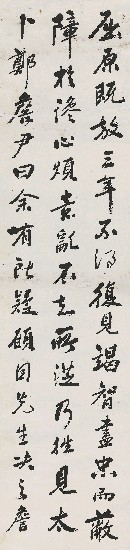 屈原既放三年不得復見竭智盡忠而蔽
障於讒心煩意亂不知所從乃往見太
卜鄭詹尹曰余有所疑願因先生決之詹